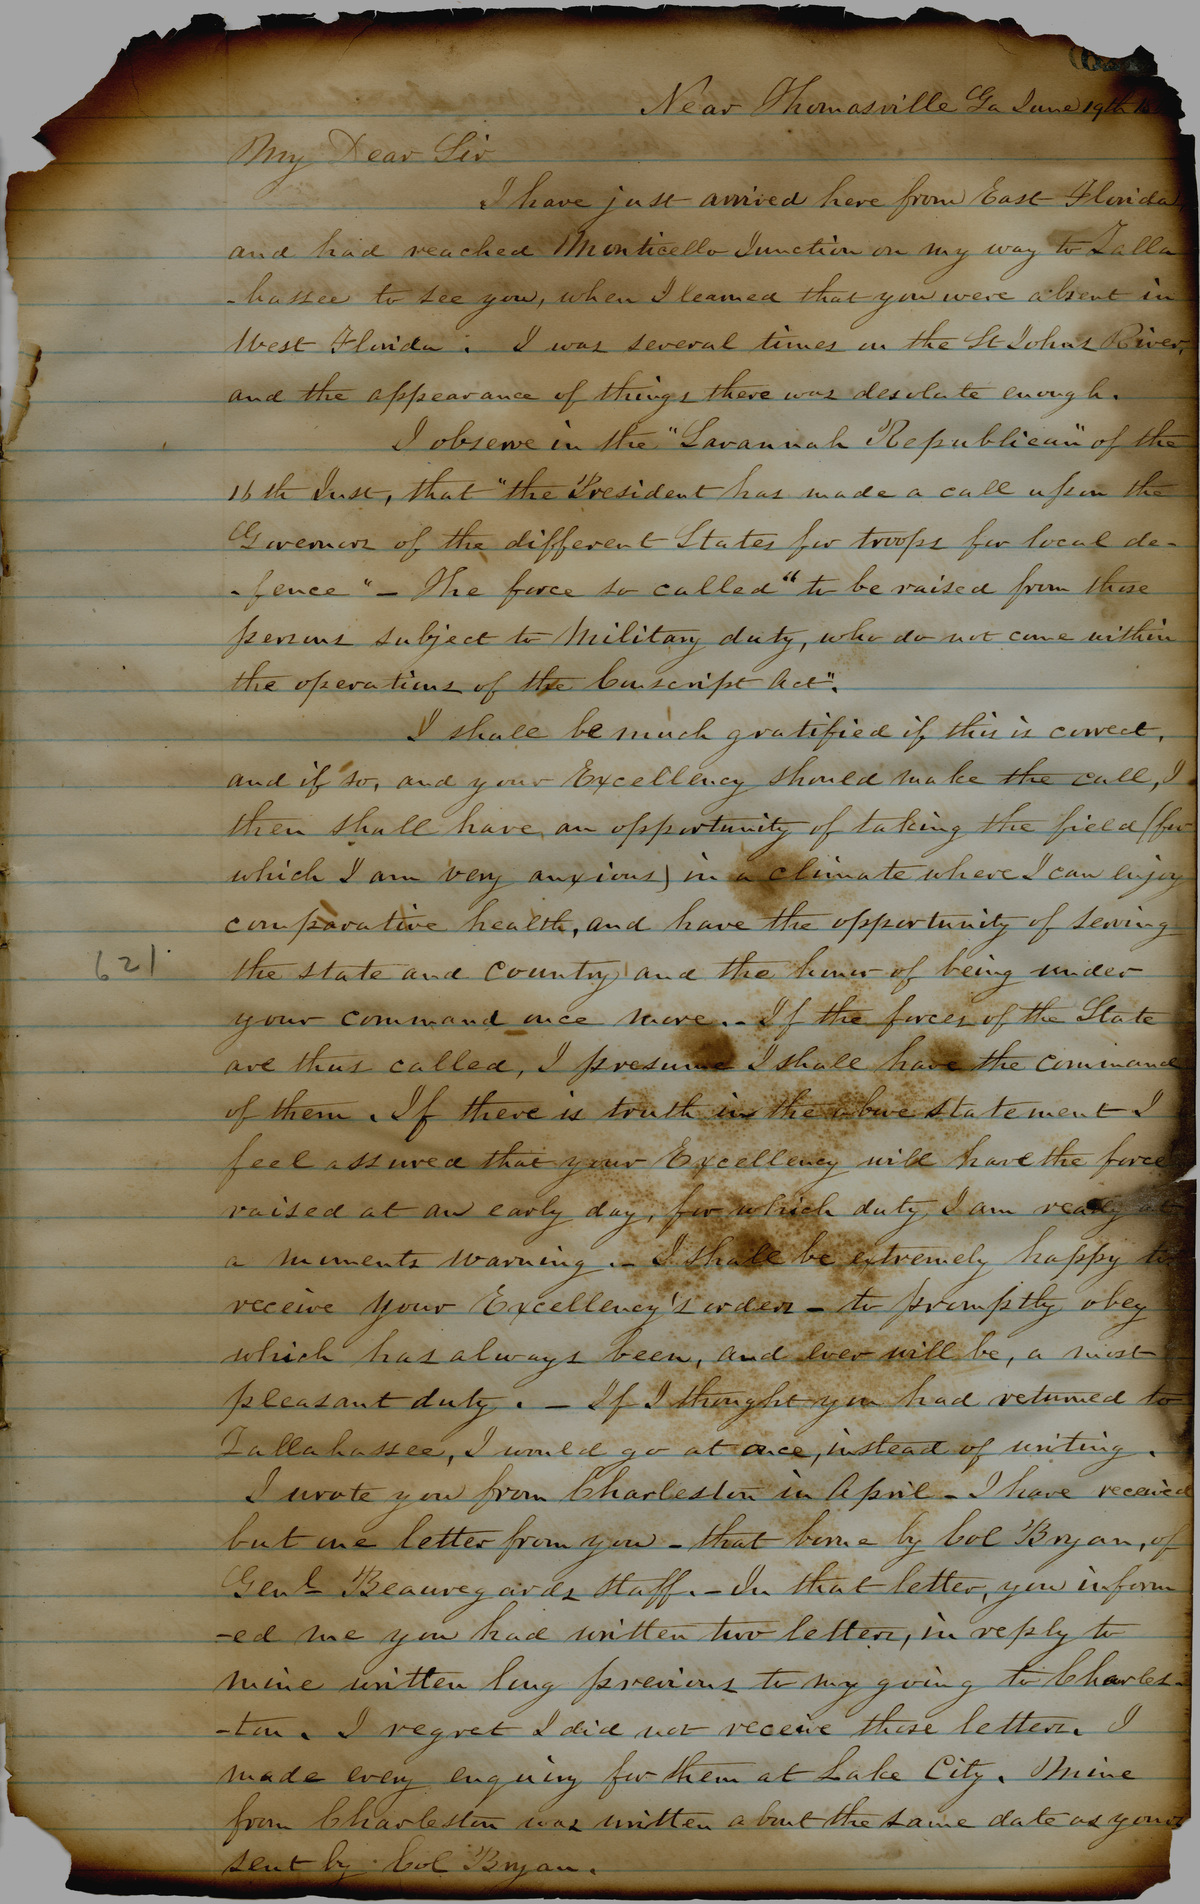 Near Thomasville Ga June 19th
My Dear Sir
I have just arrived here from East Florida,
and had reached Monticello Junction on my way to Talla
-hassee to see you, when I learned that you were absent in
West Florida. I was several times on the St Johns River,
and the appearance of things there was desolate enough.
I observe in the "Savannah Republican" of the
16th Inst, that "the President has made a call upon the
Governors of the different States for troops for local de-
-fence" - The force so called "to be raised from those
persons subject to Military duty, who do not come within
the operations of the Conscript Act".
I shall be much gratified if this is correct,
and if so, and your Excellency should make the call, I
then shall have an opportunity of taking the field (for
which I am very anxious) in a climate where I can enjoy
comparative health, and have the opportunity of serving
621
the state and country and the honor of being under
your command once more. - If the forces of the State
are thus called, I presume I shall have the command
of them. If there is truth in the above statement I
feel assured that your Excellency will have the force
raised at an early day, for which duty I am ready at
a moments warning. - I shall be extremely happy to
receive your Excellency's orders - to promptly obey
which has always been, and ever will be, a most
pleasant duty. - If I thought you had returned to
Tallahassee, I would go at once, instead of writing.
I wrote you from Charleston in April - I have received
but one letter from you - that borne by Col Bryan, of
Genl Beauregards staff. - In that letter, you inform
-ed me you had written two letters, in reply to
mine written long previous to my going to Charles-
-ton. I regret I did not receive those letters. I
made every enquiry for them at Lake City. Mine
from Charleston was written about the same date as yours
sent by Col Bryan.